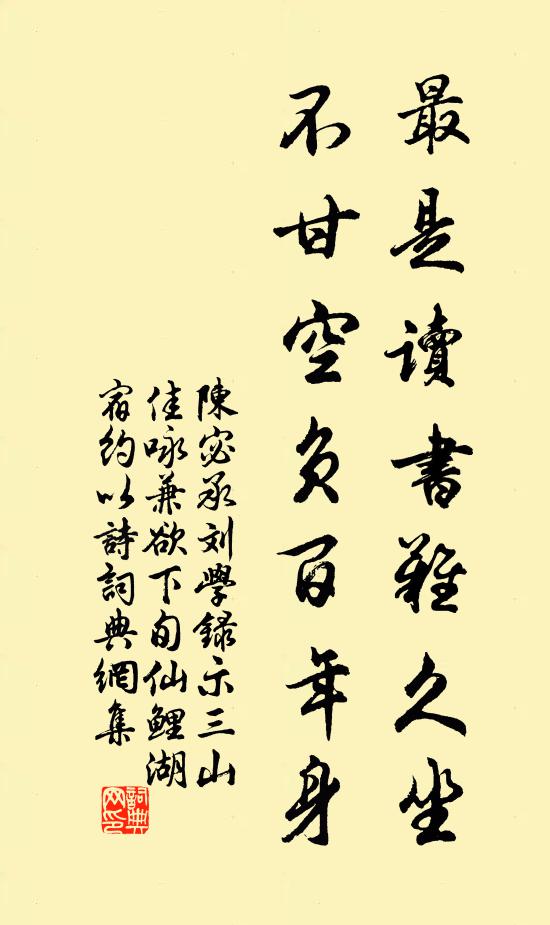 最是讀書難久坐
不甘空負百年身
陳宓承刘學録示三山
佳咏兼欲下旬仙鯉湖
宿約以詩詞典網集
詞典网印